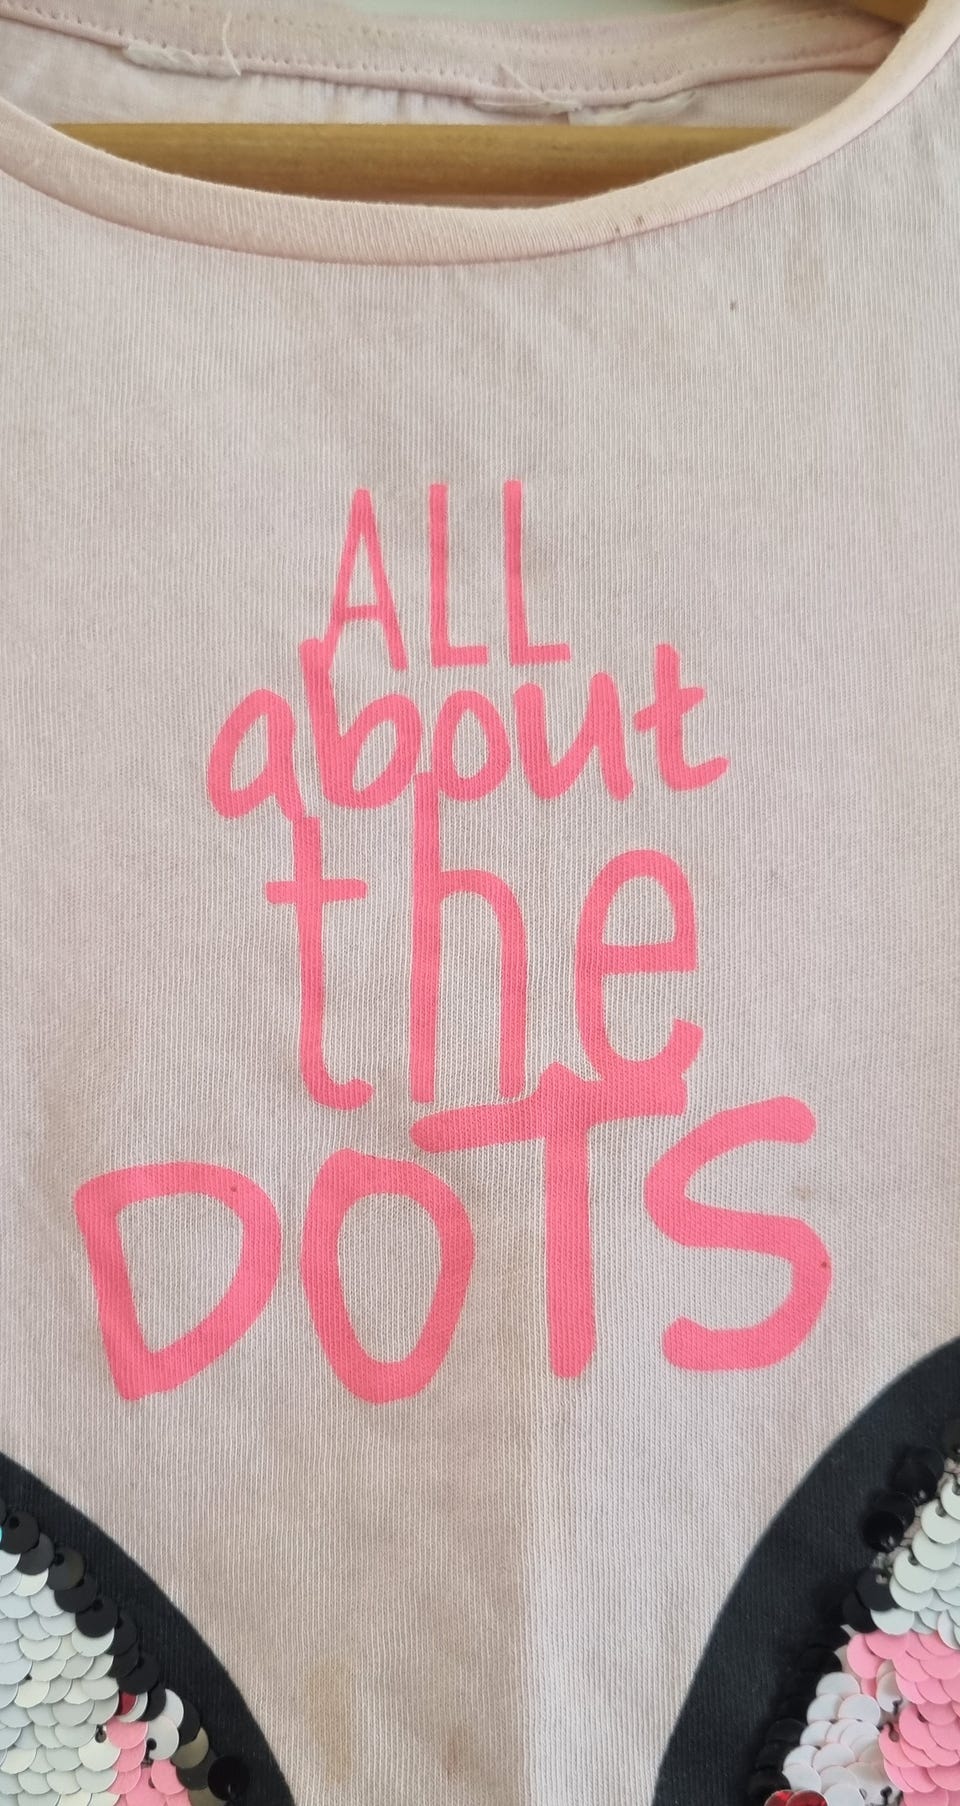 ALL
about
the
DOTS